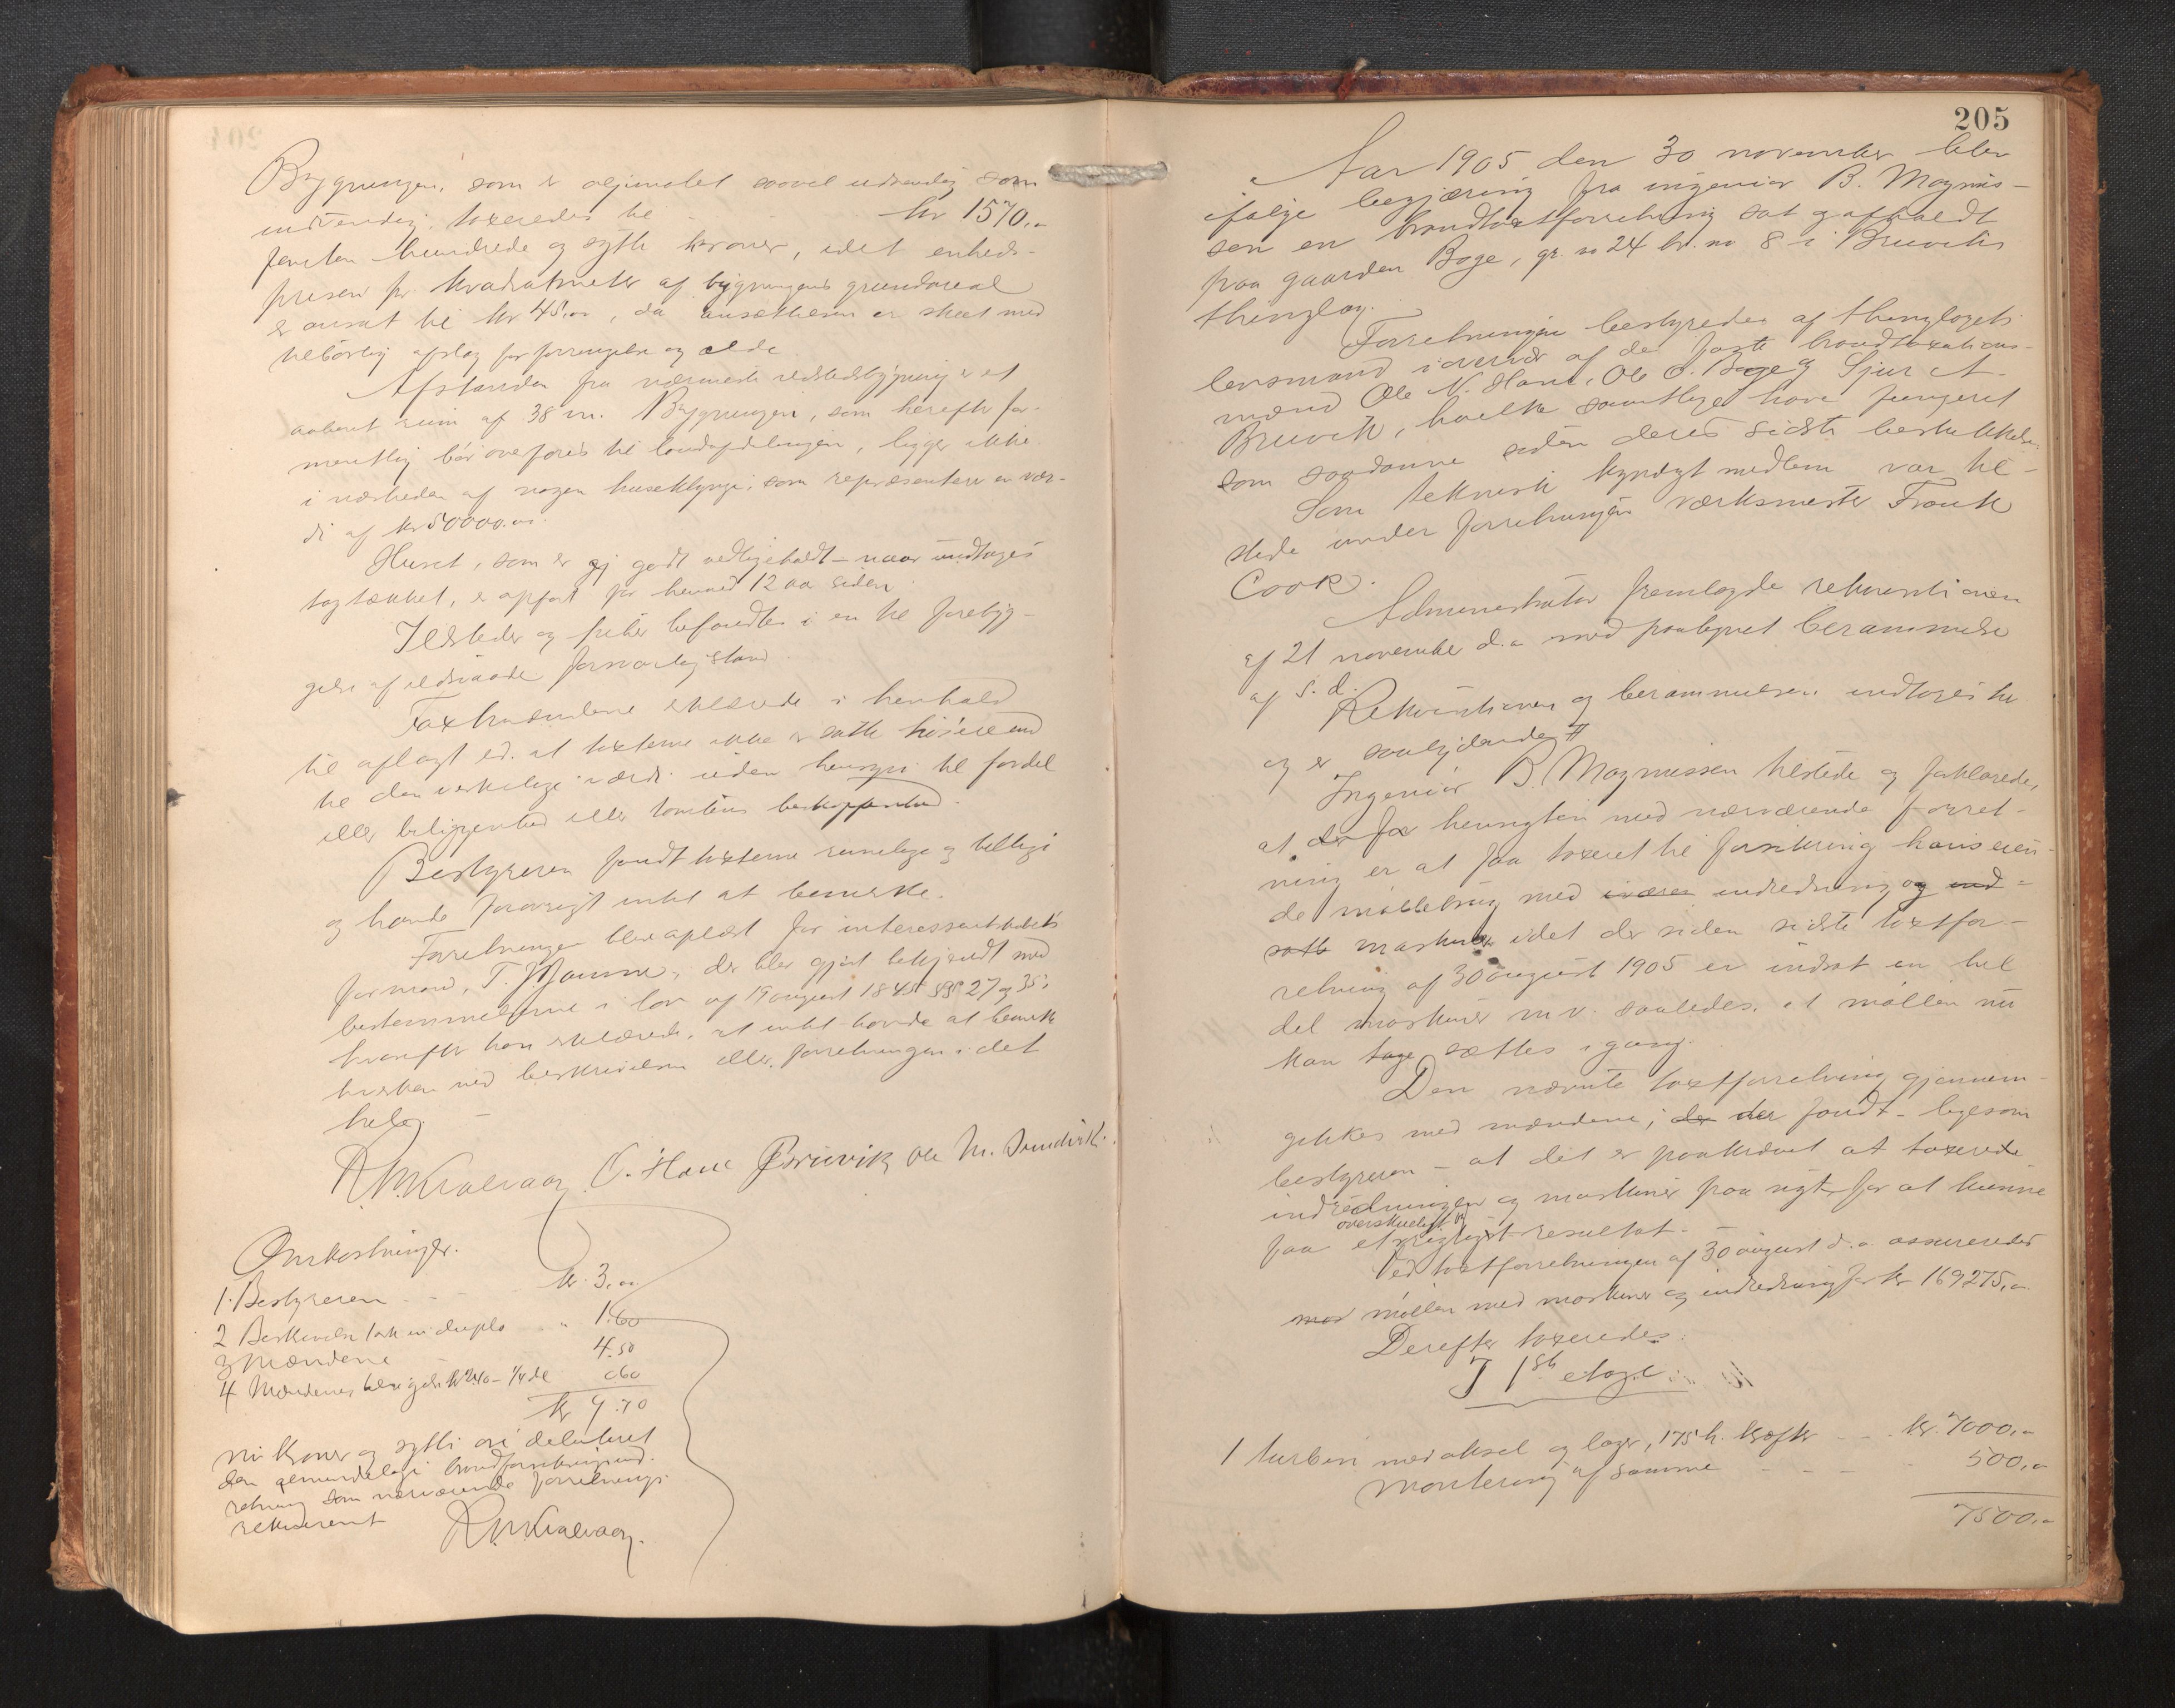 Bygningen, som er oljemalet saavel udvendig som
indvendig, taxeredes til kr 1570,00
femten hundrede og sytti kroner, idet enheds-
prisen pr kvadratmeter af bygningens grundareal
er ansat til kr 45,00, da ansættelsen er skeet med
tilbørlig afslag for forringelse og ælde
Afstanden fra nærmeste ildstedsbygning er et
aabent rum af 38 m. Bygningen, som herefter for-
mentlig bør overføres til landafdelingen, ligger ikke
i nærheden af nogen huseklynge, som repræsenterer en vær-
di af kr 50000.00.
Huset, som er gj godt vedligeholdt – naar undtages
tagtækket, er opført for henved 12 aar siden
Ildsteder og piber befandtes i en til forebyg-
gelse af ildsvaade forsvarlig stand.
Taxtmændene erklærede i henhold
til aflagt ed, at taxterne ikke er satte høiere end
til den virkelige værdi uden hensyn til fordel
eller beliggenhed eller tomtens beskaffenhed.
Bestyreren fandt taxterne rimelige og billige
og havde forøvrigt intet at bemerke.
Forretningen blev oplæst for interessentskabets
formand, T. , der blev gjort bekjendt med
bestemmelserne i lov af 19 august 1845 §§ 27 og 35;
hvorefter han erklærede, at intet havde at bemerke
hverken ved beskrivelsen eller forretningen i det
hele.
O. Hane Bruvik Ole M.
Omkostninger.
1. Bestyreren kr. 3,00
2 Beskrivelse tak in duplo " 1.60
3 Mændene 4.50
4 Mændenes kr 2.40 – 1/4 de 0.60
kr 9.70
Ni kroner og sytti øre debiteret
den almindelige brandforsikringsind-
retning som nærværende forretnings
rekvirent
205
Aar 1905 den 30 november blev
ifølge begjæring fra ingeniør B. Magnus-
sen en brandtaxtforretning sat og afholdt
paa gaarden Boge, gr. no 24 br. no 8 i Bruviks
thinglag.
Forretningen bestyredes af thinglagets
lensmand i overvær af de faste brandtaxations-
mænd Ole N. Hane, Ole O. Boge og Sjur A.
Bruvik, hvilke samtlige have fungeret
som saadanne siden deres sidste beskikkelse.
Som teknisk kyndigt medlem var til-
stede under forretningen værksmester Frank
Cook.
Administrator fremlagde rekvisitionen
af 21 november d.a. med paategnet berammelse
af s.d.
Rekvisitionen og berammelsen indtages her
og er saalydende: #
Ingeniør B. Magnussen tilstede og forklarede,
at der for hensigten med nærværende forret-
ning er at faa taxeret til forsikring hans eien-
de møllebrug med indredning og ind-
satte maskiner idet der siden sidste taxtfor-
retning af 30 august 1905 er indsat en hel
del maskiner m.v. saaledes, at møllen nu
kan tage sættes igang.
Den nævnte taxtforretning gjennem-
gikkes med mændene; der fandt – ligesom
bestyreren – at det er paakrævet at taxerede
indredningen og maskiner paa nyt, for at kunne
overskueligt og
faa et rigtigst resultat.
Ved taxtforretningen af 30 august d.a. assureredes
møllen med maskiner og indredning for kr 169275,00
Derefter taxeredes:
I 1ste etage:
1 turbin med aksel og lager, 175 h. kræfter kr. 7000,00
Montering af samme 500,00
7500,00